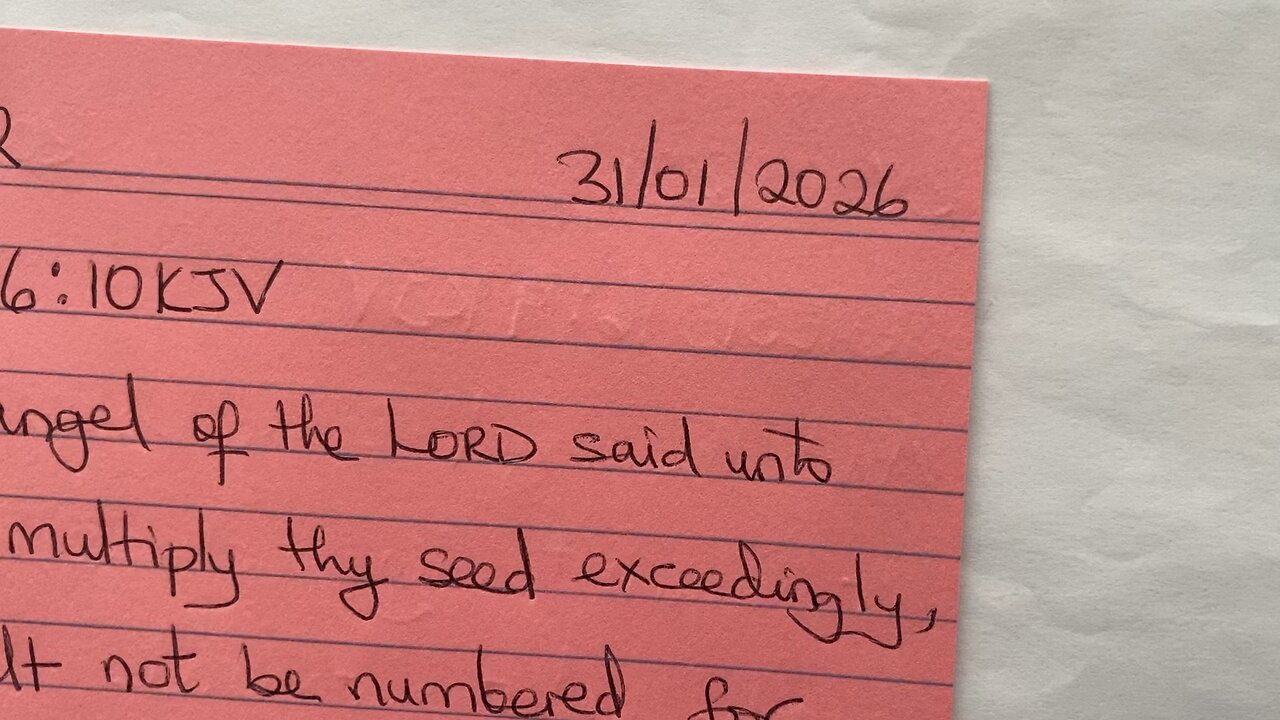 R 31/01/2026
6:10 KJV
angel of the LORD said unto
multiply thy seed exceedingly,
not be numbered for